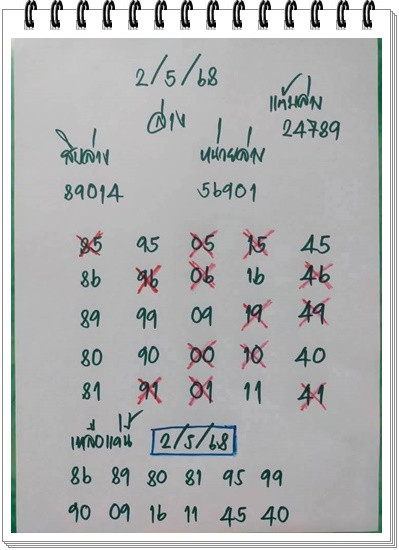 2/5/68
ล่าง
แต้มล่าง
24789
สิบล่าง หน่วยล่าง
89014 56901
85 95 05 15 45
86 96 06 16 46
89 99 09 19 49
80 90 00 10 40
81 91 01 11 41
เหลือแค่นี้ 2/5/68
86 89 80 81 95 99
90 09 16 11 45 40